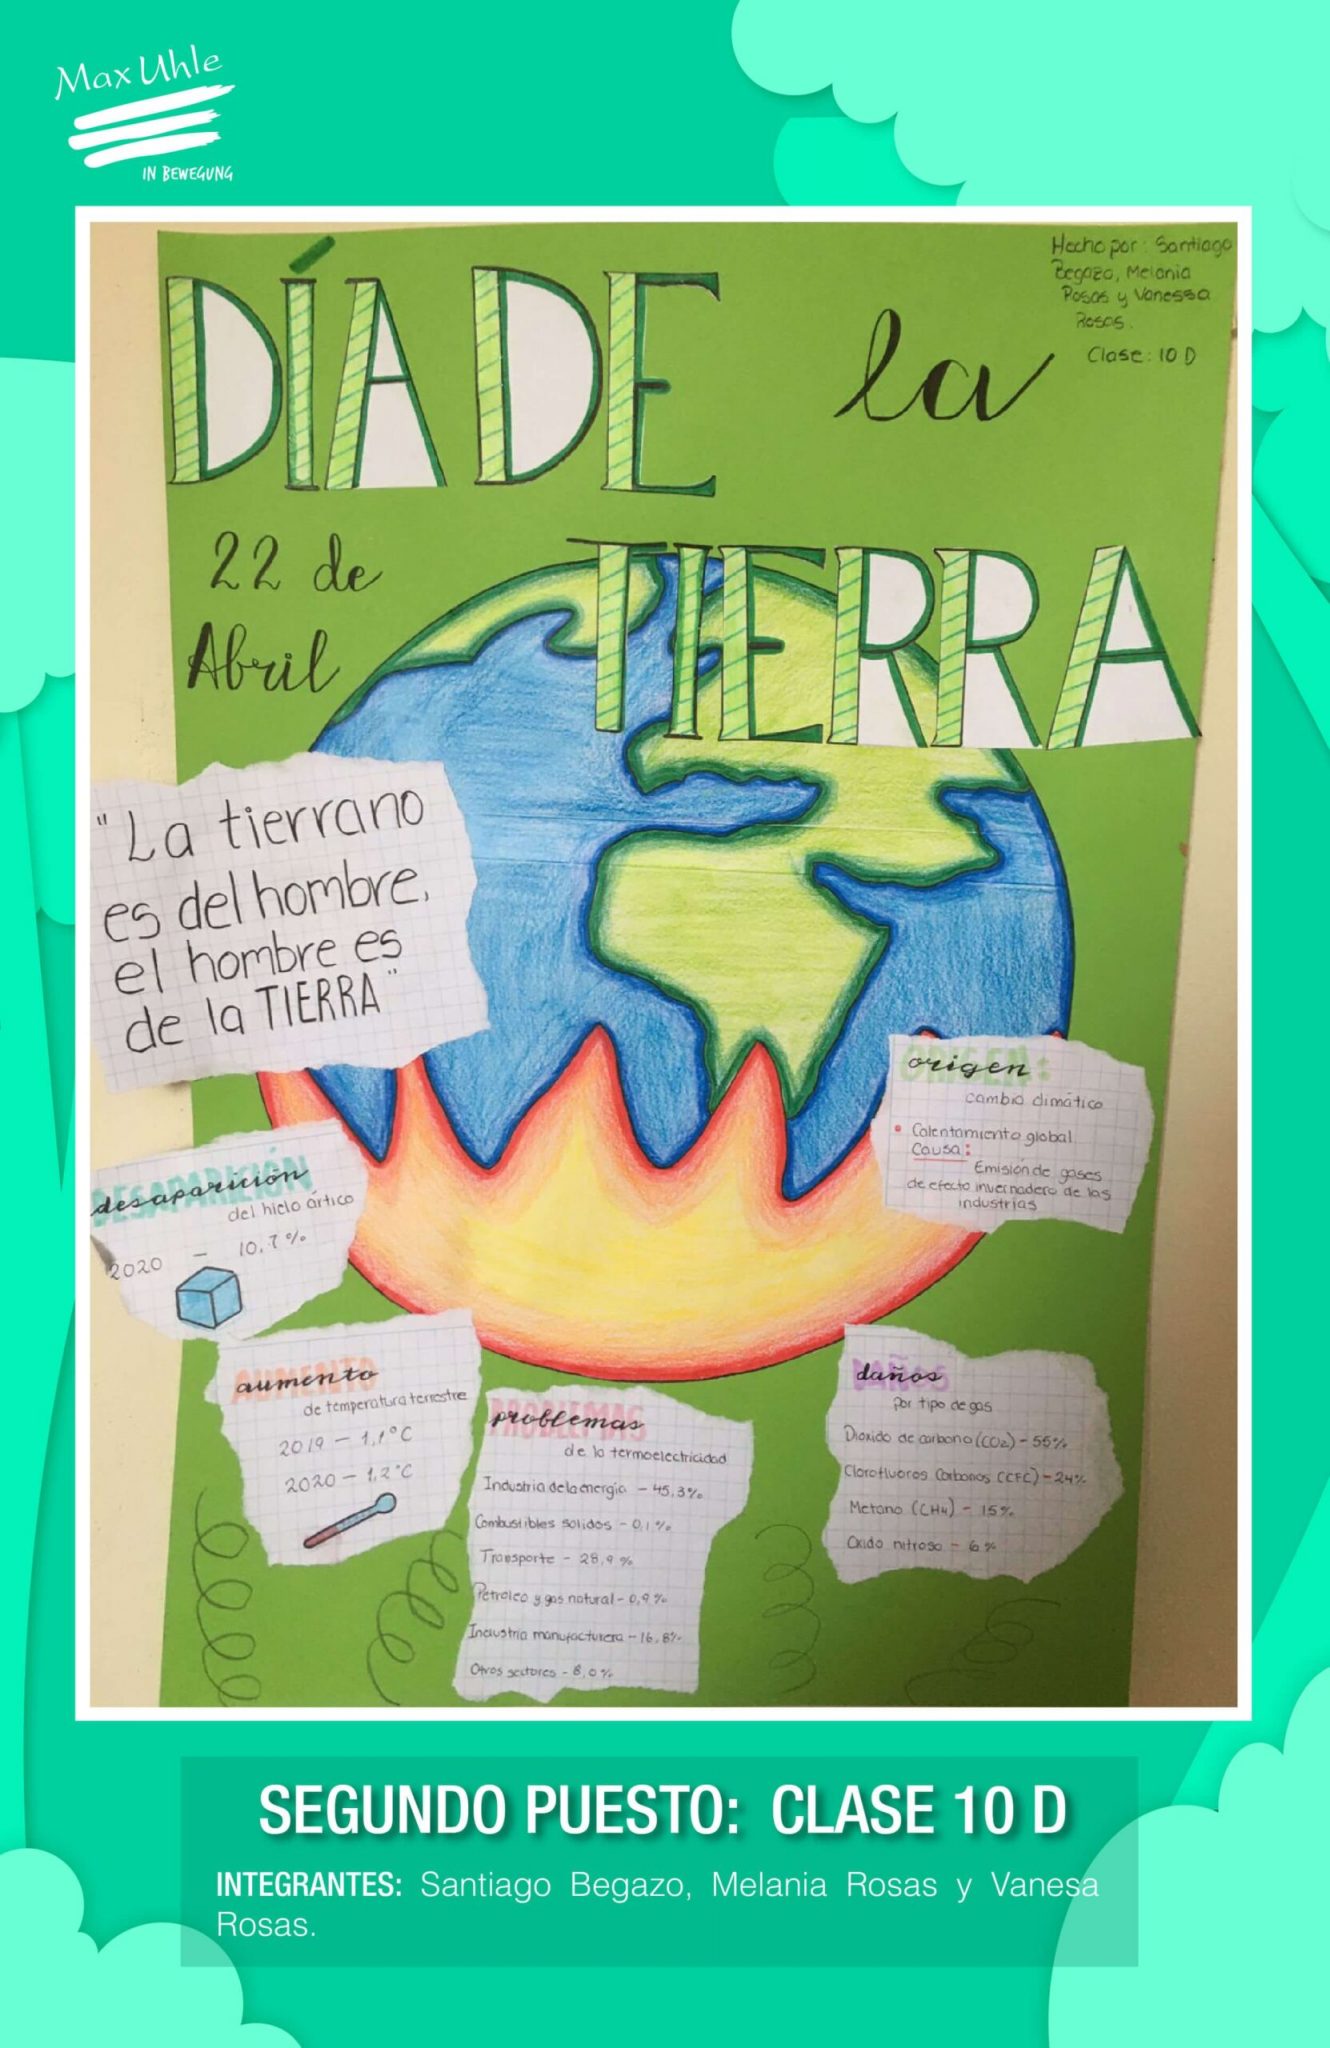 Max Uhle
IN BEWEGUNG
Hecho por: Santiago
Begazo, Melania
Rosas y Vanessa
Rosas.
Clase: 10 D
DÍA DE la
TIERRA
22 de
Abril
"La tierra no
es del hombre,
el hombre es
de la TIERRA"
ORIGEN:
origen
cambio climático
• Calentamiento global
Causa:
Emisión de gases
de efecto invernadero de las
industrias
DESAPARICIÓN
desaparición
del hielo ártico
2020 - 10,7%
AUMENTO
aumento
de temperatura terrestre
2019 - 1,1°C
2020 - 1,2°C
PROBLEMAS
problemas
de la termoelectricidad
Industria de la energía - 45,3%
Combustibles solidos - 0,1%
Transporte - 28,9%
Petroleo y gas natural - 0,9%
Industria manufacturera - 16,8%
Otros sectores - 8,0%
DAÑOS
daños
Por tipo de gas
Dioxido de carbono (CO2) - 55%
Clorofluoros Carbonos (CFC) - 24%
Metano (CH4) - 15%
Oxido nitroso - 6%
SEGUNDO PUESTO: CLASE 10 D
INTEGRANTES: Santiago Begazo, Melania Rosas y Vanesa
Rosas.